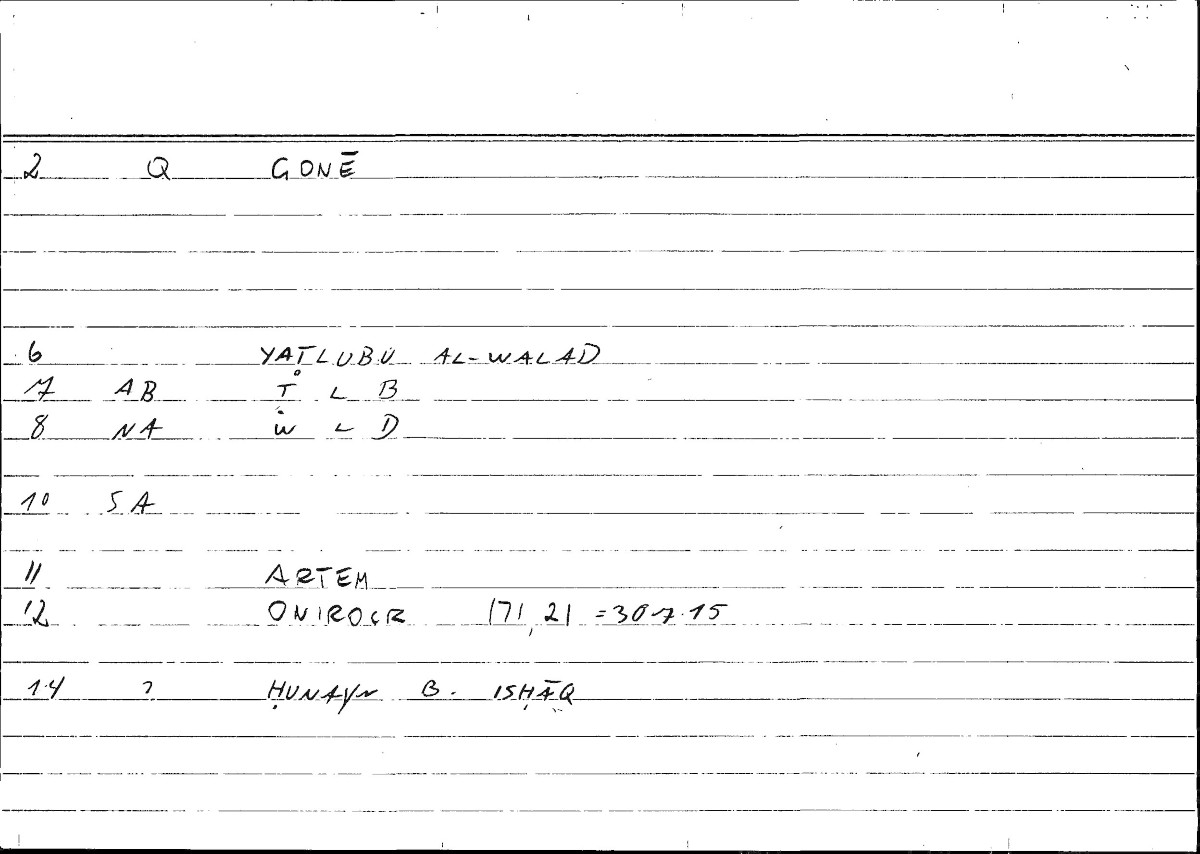 2 Q GONĒ
6 YAṬLUBU AL-WALAD
7 AB Ṭ L B
8 NA W L D
10 SA
11 ARTEM
12 ONIROCR 171,21 =307.15
14 ? ḤUNAYN B. ISḤĀQ